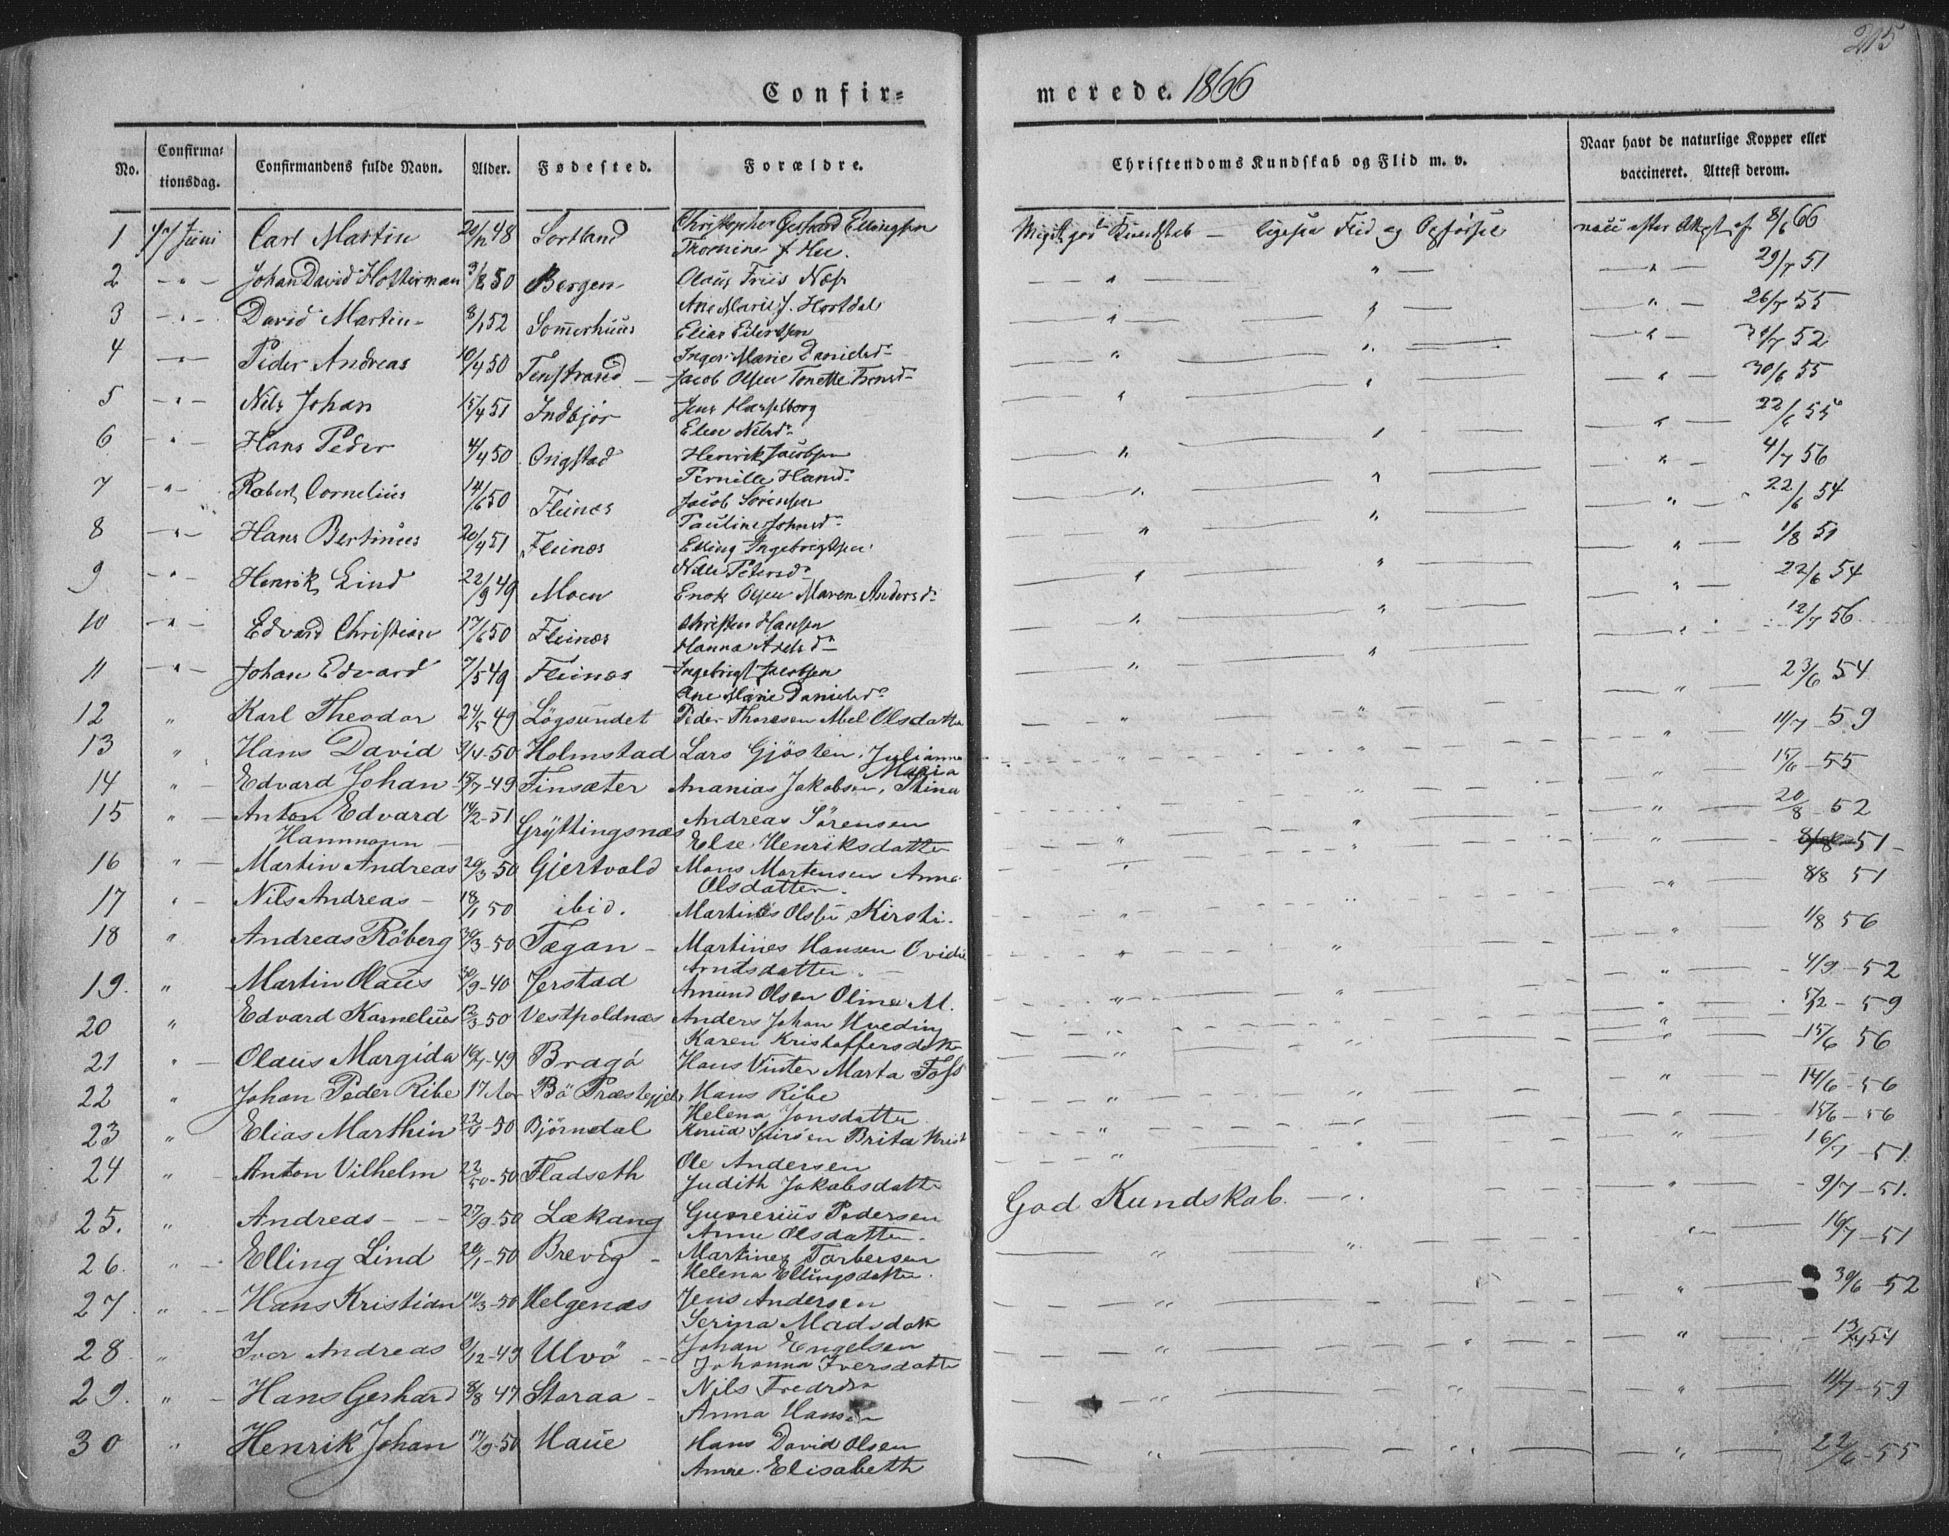 215
Confir= merede. 1866
No. Confirmationsdag. Confirmandens fulde Navn. Alder. Fødested. Forældre. Christendoms Kundskab og Flid m. v. Naar havt de naturlige Kopper eller vaccineret. Attest derom.
1 Juni Carl Martin 48 Sortland Christopher Ellingsen Kundskab — Flid og Opførsel 8/6 66
2 — " — Johan David 50 Bergen Olaus Friis Næss " " — " — 29/7 51
Ane Marie
3 — " — David Martin 8/1 52 Sommerhuus Elias Eilertsen " " " — 26/7 55
4 — " — Peder Andreas 10/4 50 Tenstrand Inger Marie Danielsd. " " — " — 52
Jacob Olsen Tonette
5 — " — Nils Johan 15/4 51 Indbjør Jens Hasselborg " " — " — 30/6 55
Elen Nilsd.
6 — " — Hans Peder 4/4 50 Ongstad Henrik Jacobsen " " — " — 22/6 55
Pernille Hansd.
7 — " — Robert Cornelius 14/6 50 Fleines Jacob Sørensen " " — " — 4/7 56
Pauline Johnsd.
8 — " — Hans Bertinus 20/4 51 Fleines Elling Ingebrigtsen " " — " — 22/6 54
Petersd.
9 — " — Henrik Lind 22/9 49 Moen Enok Olsen Maren Andersd. " " — " — 1/8 51
10 — " — Edvard Christian 17/6 50 Fleines Christen Hansen " " — " — 22/6 54
Hanna
11 — " — Johan Edvard 7/5 49 Fleines Ingebrigt Jacobsen " " 12/7 56
Ane Marie Danielsd.
12 " Karl Theodor 24/5 49 Løgsundet Peder Thoresen Olsdatter " " — " — 23/6 54
13 " Hans David 3/4-50 Holmstad Lars Gjøsten, Julianna Maria " " 11/7-59
14 " Edvard Johan 15/7-49 Finsæter Ananias Jakobsen, Stina " 15/6-55
15 " Anton Edvard Hammann 14/2-51 Gryttingsnæs Andreas Sørensen " " 20/8-52
Else Henriksdatter " " " 51
16 " Martin Andreas 29/3-50 Gjertvold Mons Mortensen Anne Olsdatter " 8/8 51
17 " Nils Andreas 18/1 50 ibid. Martines Olsen Kirsti " " 1/8 56
18 " Andreas Røberg 30/3-50 Tægan Martines Hansen Ovidie Arntsdatter " " " 4/9-52
19. " Martin Olaus 30/9-40 Jerstad Amund Olsen Oline M. " " " 5/12-59
20 " Edvard Kornelius 12/3-50 Vestpoldnæs Anders Johan Hveding " " 15/6 56
Karen Kristoffersdatter
21 " Olaus Margida 49 Bragø Hans Vinter Marta Foss " " 14/6-56
22 " Johan Peder Ribe 17 Bø Præstegjeld Hans Ribe " 15/6-56
Helena Jonsdatter
23 " Elias Marthin 50 Bjørndal Knud Brita " " 16/7-51.
24 " Anton Vilhelm 22/10-50 Fladseth Ole Andersen " " 9/7-51.
Judith Jakobsdatter
25. " Andreas 27/9-50 Lækang Gunerius Pedersen God Kundskab. " 16/7-51
Anne Olsdatter.
26. " Elling Lind 20/1-50 Brevig Martines Torbersen " " " 30/6-52
Helena Ellingsdatter.
27 " Hans Kristian 50 Helgenæs Jens Andersen " " 54
Serina Madsdatter
28 " Iver Andreas 12-43 Ulvø Johan Engelsen " " " 11/7-59
Johanna Iversdatter
29. " Hans Gerhard 8/8 47 Storaa Nils " "
Anna Hansen
30 " Henrik Johan 17/9-50 Haue Hans David Olsen " " " 22/6-55
Elisabeth